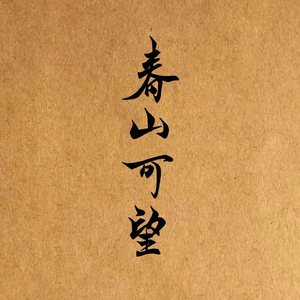 春山可望